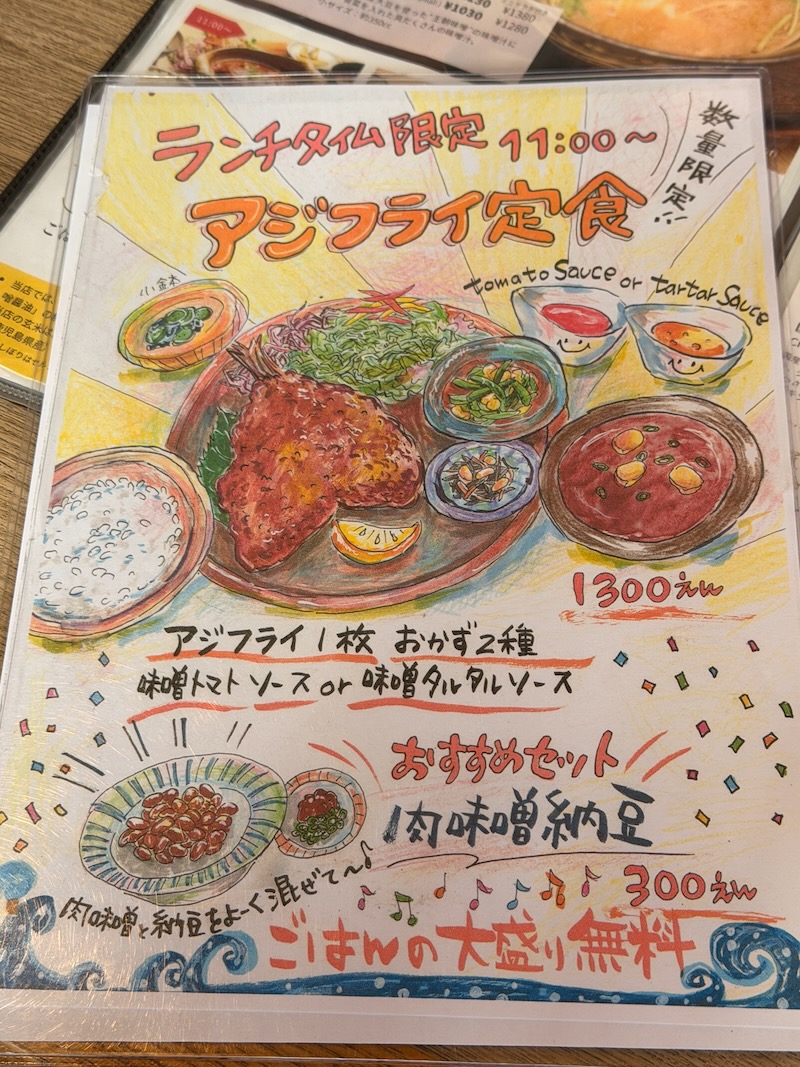 ¥1380
¥1030
¥1280
小サイズ：約350cc
11:00〜
ランチタイム限定 11:00〜
数量限定!!
アジフライ定食
小鉢
tomato Sauce or tartar Sauce
1300えん
アジフライ1枚 おかず2種
味噌トマトソース or 味噌タルタルソース
おすすめセット
肉味噌納豆
300えん
肉味噌と納豆をよーく混ぜて〜♪
ごはんの大盛り無料